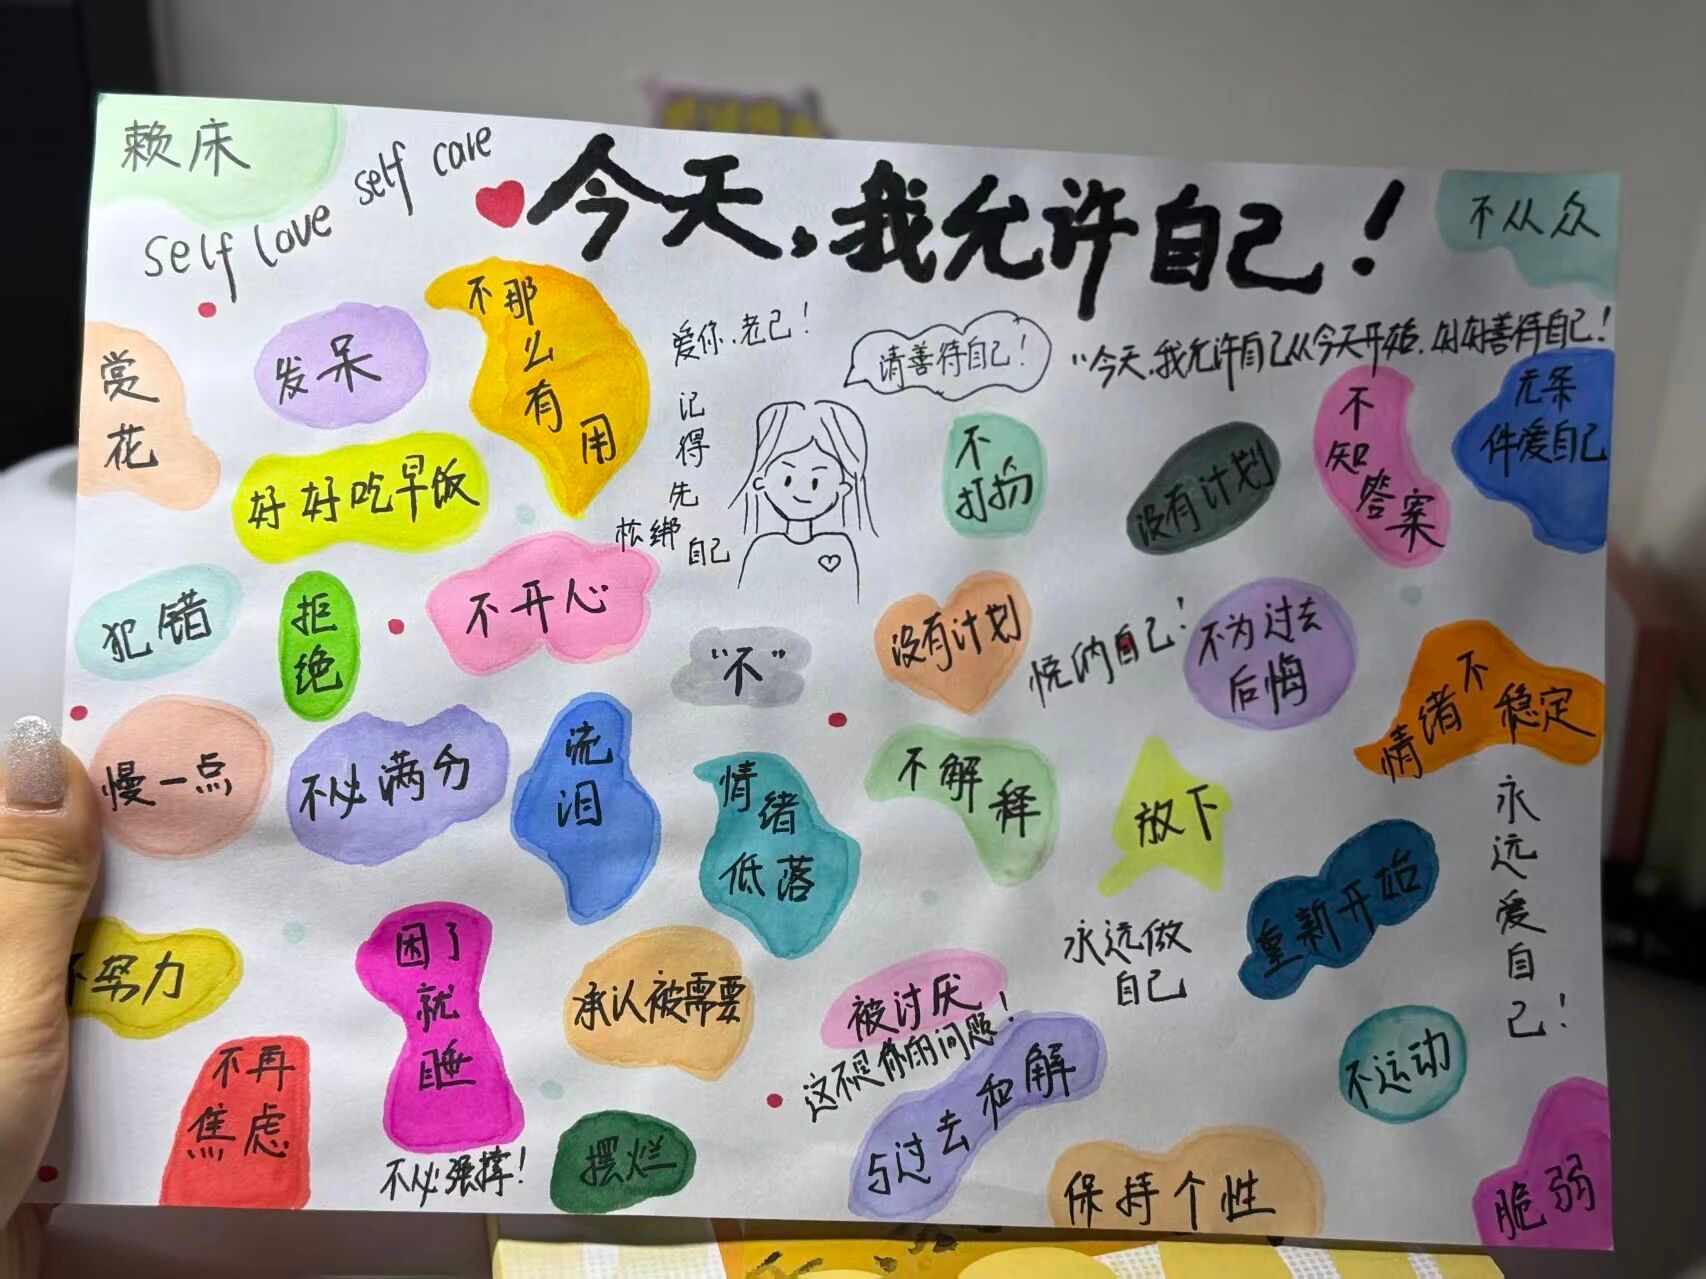 赖床
self love self care
今天,我允许自己!
不从众
赏花
发呆
不那么有用
爱你.老己!
请善待自己!
"今天.我允许自己从今天开始.好好善待自己!
好好吃早饭
记得先松绑自己
不打扮
没有计划
不知答案
无条件爱自己
犯错
拒绝
不开心
"不"
没有计划
悦纳自己!
不为过去
后悔
情绪不稳定
慢一点
不必满分
流泪
情绪
低落
不解释
放下
重新开始
永远爱自己!
不努力
困了就睡
承认被需要
被讨厌
这不是你的问题!
永远做
自己
不运动
不再
焦虑
不必强撑!
摆烂
与过去和解
保持个性
脆弱